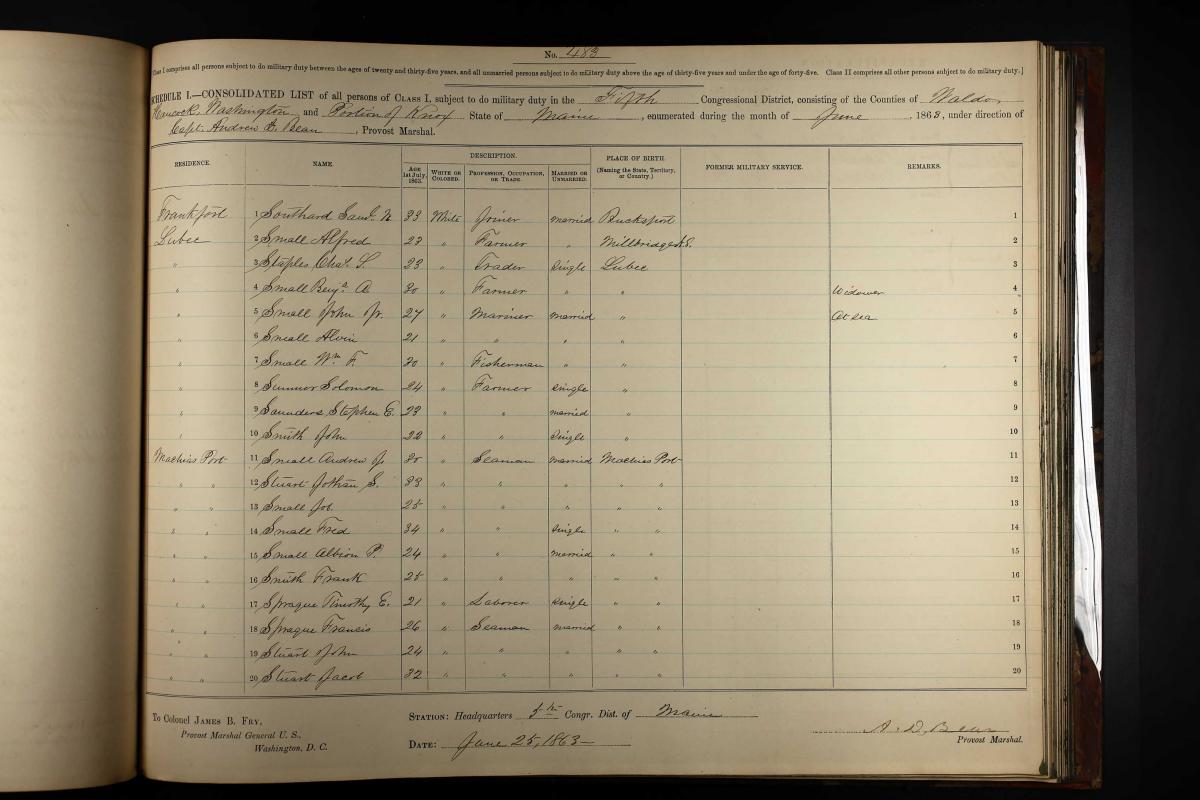 No. 483
[Class I comprises all persons subject to do military duty between the ages of twenty and thirty-five years, and all unmarried persons subject to do military duty above the age of thirty-five years and under the age of forty-five. Class II comprises all other persons subject to do military duty.]
SCHEDULE I.—CONSOLIDATED LIST of all persons of CLASS I, subject to do military duty in the Fifth Congressional District, consisting of the Counties of Waldo,
Hancock, Washington and Portion of Knox State of Maine, enumerated during the month of June, 1863, under direction of
Capt. Andrew D. Bean, Provost Marshal.
RESIDENCE. NAME. DESCRIPTION. PLACE OF BIRTH. (Naming the State, Territory, or Country.) FORMER MILITARY SERVICE. REMARKS.
AGE 1st July, 1863. WHITE OR COLORED. PROFESSION, OCCUPATION, OR TRADE. MARRIED OR UNMARRIED.
Frankfort 1 Southard Saml. N 33 White Joiner married Bucksport 1
Lubec 2 Small Alfred 23 " Farmer " Millbridge 2
" 3 Staples Chas. S. 23 " Trader Single Lubec 3
" 4 Small Benja. A. 30 " Farmer " " Widower 4
" 5 Small John Jr. 27 " Mariner married " At sea 5
" 6 Small Alvin 21 " " " " 6
" 7 Small Wm F. 30 " Fisherman " " 7
" 8 Sumner Solomon 24 " Farmer single " 8
" 9 Saunders, Stephen E. 23 " " married " 9
" 10 Smith John 22 " " Single " 10
Machias Port 11 Small Andrew J. 30 " Seaman married Machias Port 11
" " 12 Stuart Jotham S. 33 " " " " " 12
" " 13 Small Job. 25 " " " " " 13
" " 14 Small Fred 34 " " single " " 14
" " 15 Small Albion P. 24 " " married " " 15
" " 16 Smith Frank 25 " " " " " 16
" " 17 Sprague Timothy E. 21 " Laborer single " " 17
" " 18 Sprague Francis 26 " Seaman married " " 18
" " 19 Stuart John 24 " " " " " 19
" " 20 Stuart Jacob 32 " " " " " 20
To Colonel JAMES B. FRY,
Provost Marshal General U. S.,
Washington, D. C.
STATION: Headquarters 5th Congr. Dist. of Maine
DATE: June 25, 1863—
A. D. Bean
Provost Marshal.